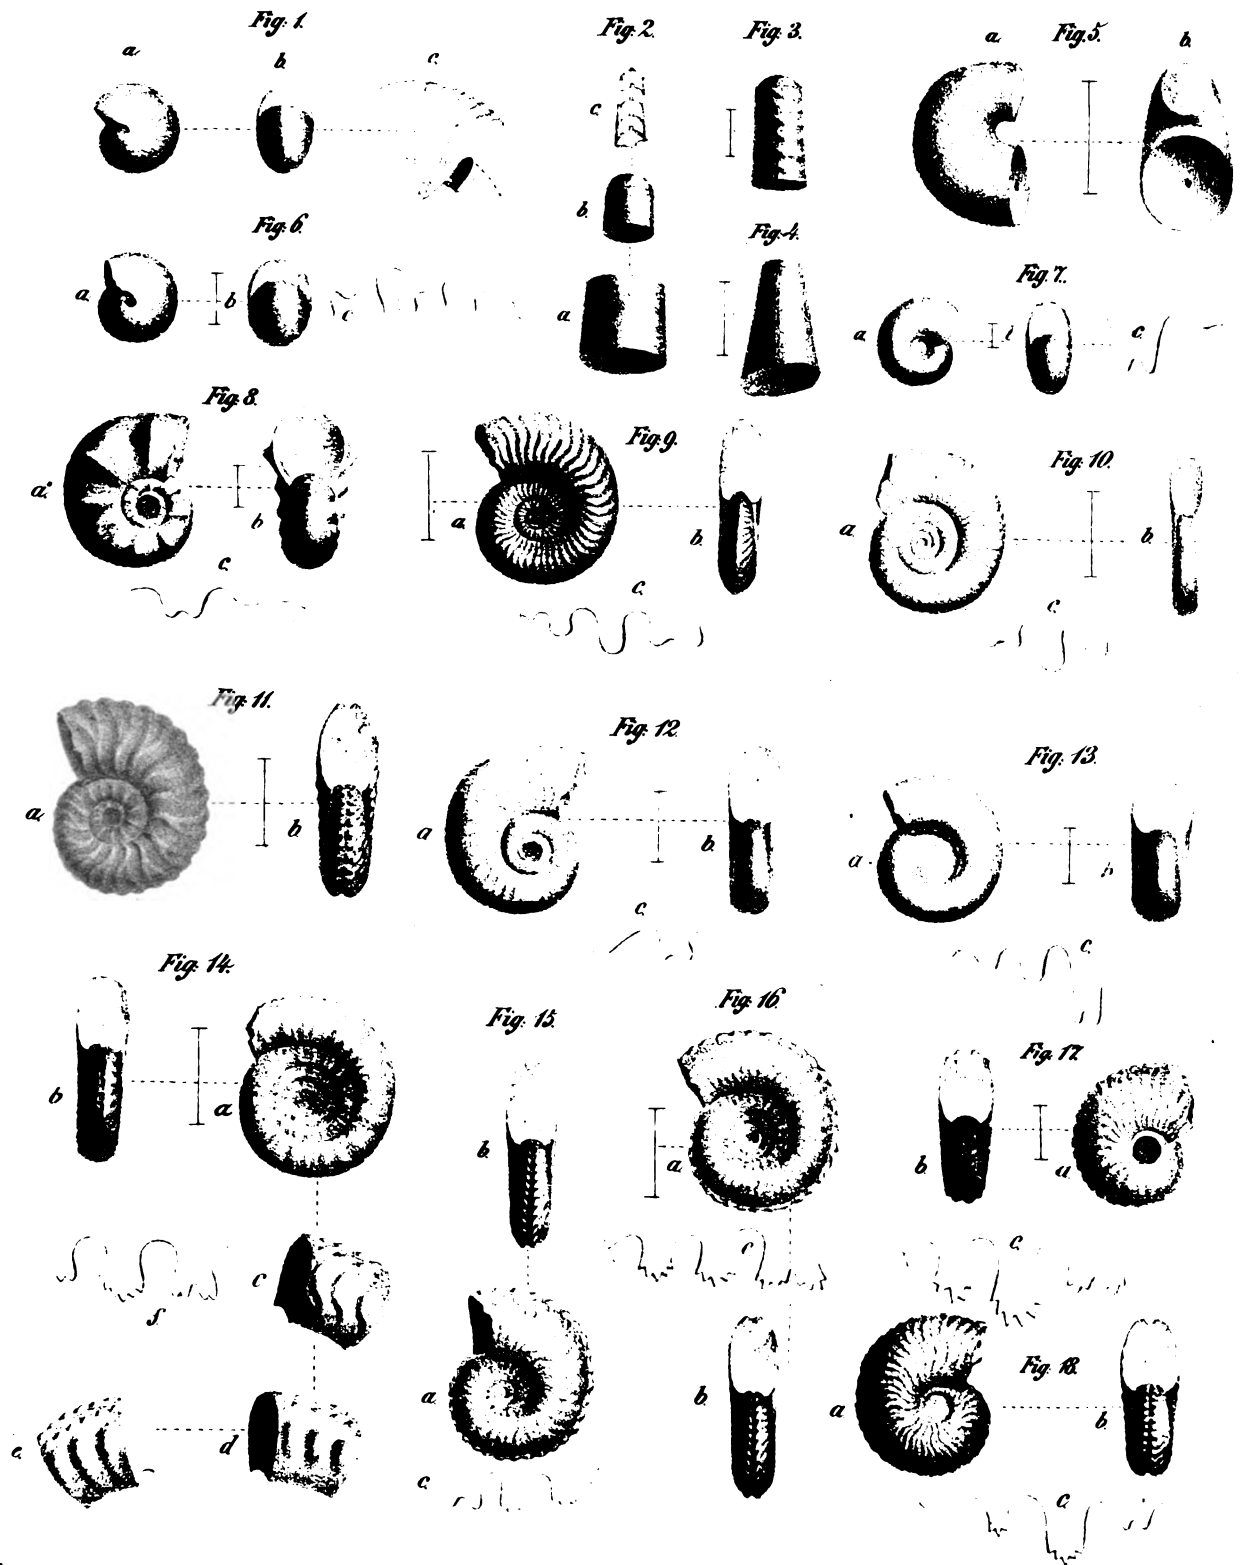 Fig. 1.
a.
b.
c.
Fig. 2.
c.
b.
a
Fig. 3.
Fig. 4.
Fig. 5.
a.
b.
Fig. 6.
a.
b
c
Fig. 7.
a.
c.
Fig. 8.
a.
b
c.
Fig. 9.
a.
b.
c.
Fig. 10.
a.
b.
c.
Fig. 11.
a.
b
Fig. 12.
a
b.
c.
Fig. 13.
a.
b
c.
Fig. 14.
b
a
c
f.
e.
d
Fig. 15.
b.
a.
c.
Fig. 16.
a.
c
b.
Fig. 17.
b.
a
c.
Fig. 18.
a
b.
c.